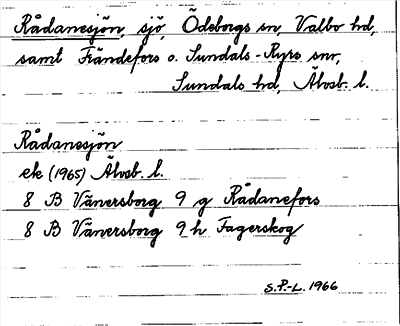 Rådanesjön, sjö, Ödeborgs sn, Valbo hd,
samt Frändefors o. Sundals-Ryrs snr,
Sundals hd, Älvsb. l.
Rådanesjön
ek (1965) Älvsb. l.
8 B Vänersborg 9 g Rådanefors
8 B Vänersborg 9 h Fagerskog
S.P.-L. 1966